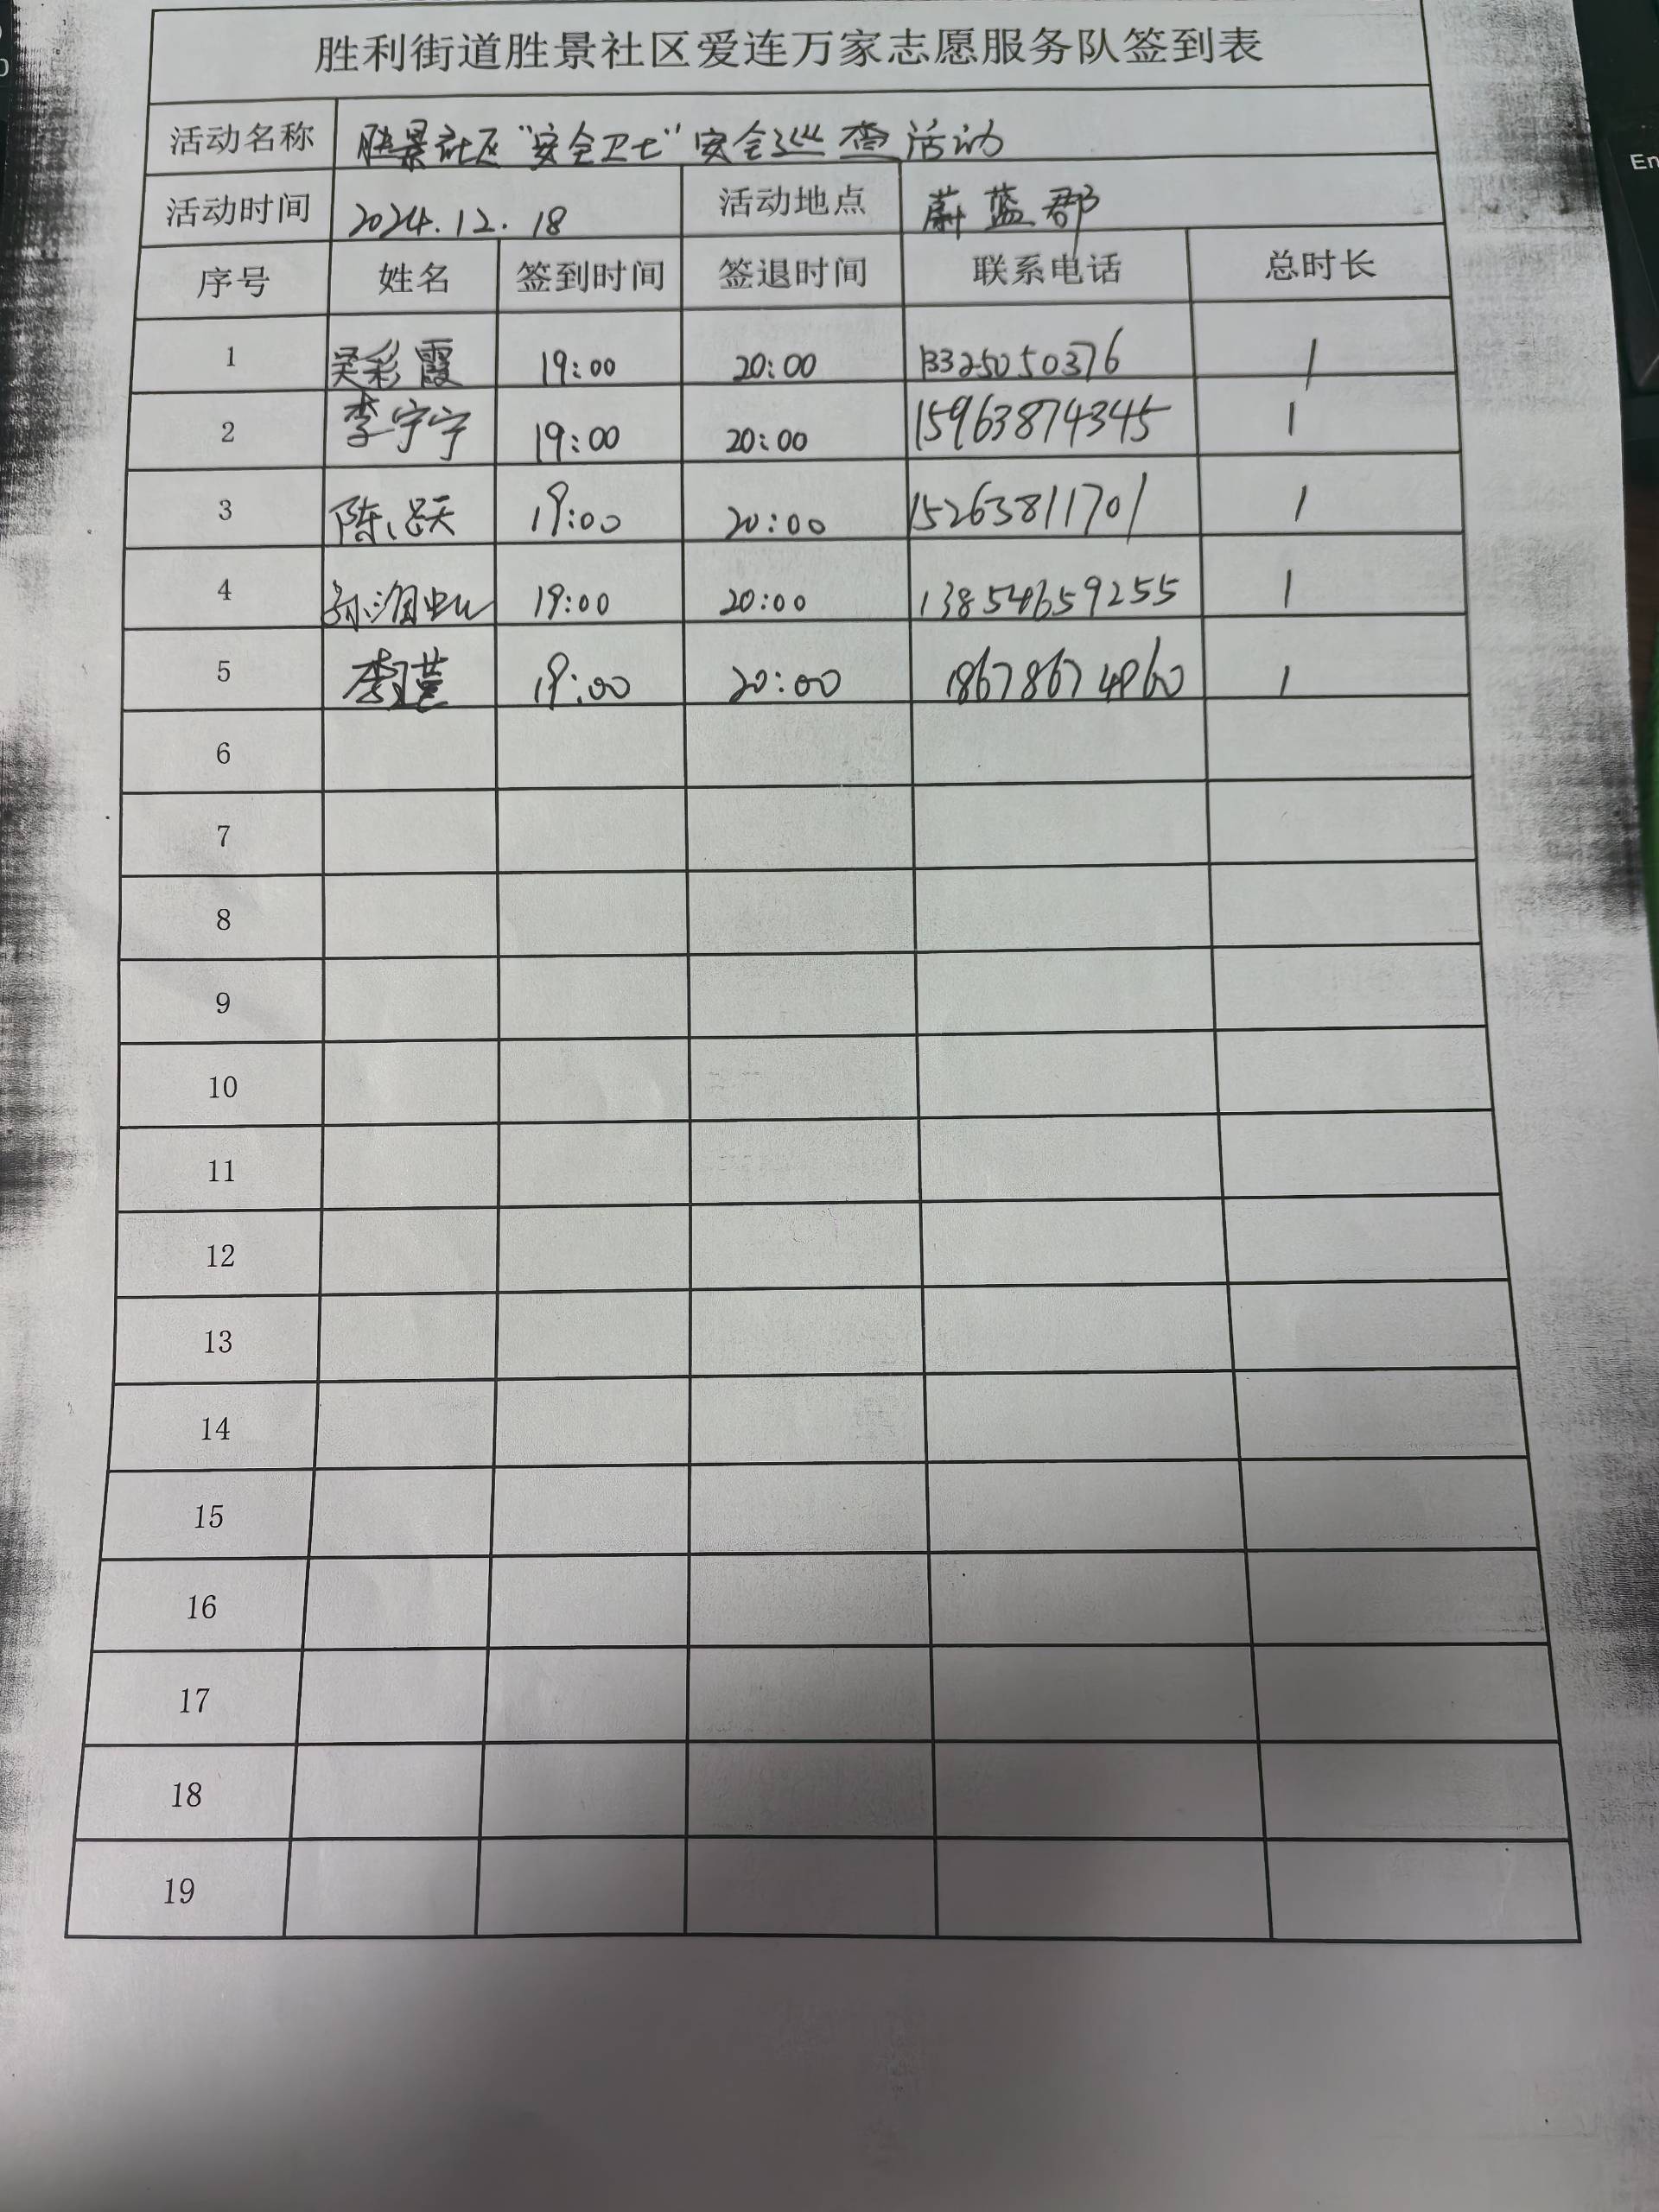 胜利街道胜景社区爱连万家志愿服务队签到表
活动名称 胜景社区“安全卫士”安全巡查活动
活动时间 2024.12.18 活动地点 蔚蓝郡
序号 姓名 签到时间 签退时间 联系电话 总时长
1 吴彩霞 19:00 20:00 13325050376 1
2 李宁宁 19:00 20:00 15963874345 1
3 陈 19:00 20:00 15263811701 1
4 孙 19:00 20:00 13854659255 1
5 李瑾 19:00 20:00 18678674960 1
6
7
8
9
10
11
12
13
14
15
16
17
18
19
En